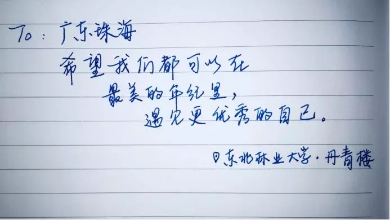 To：广东珠海
希望我们都可以在
最美的年纪里，
遇见更优秀的自己。
@东北林业大学·丹青楼